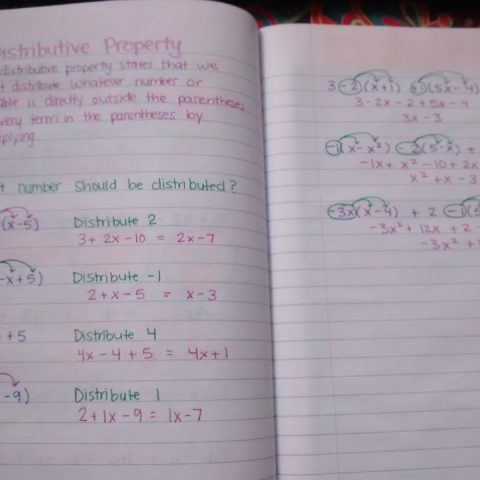 Distributive Property
distributive property states that we
distribute whatever number or
is directly outside the parentheses
every term in the parentheses by
number should be distributed?
(x-5) Distribute 2
3+ 2x-10 = 2x-7
-x+5) Distribute -1
2+x-5 = x-3
+5 Distribute 4
4x-4+5 = 4x+1
-9) Distribute 1
2+1x-9= 1x-7
3-2(x+1) + (5x-4)
3-2x-2+5x-4
3x-3
-1(x-x²) -2(5-x) +
-1x+x²-10+2x
x²+x-3
-3x(x-4) + 2 -1(5
-3x²+12x+2-
-3x²+